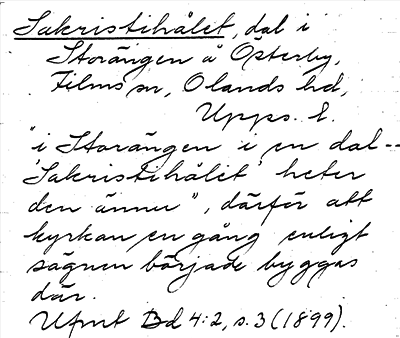 Sakristihålet, dal i
Storängen å Österby,
Films sn, Olands hd,
Upps. l.
"i Storängen i en dal --
'Sakristihålet' heter
den ännu", därför att
kyrkan en gång enligt
sägnen började byggas
där.
Ufmt Bd 4:2, s. 3 (1899).